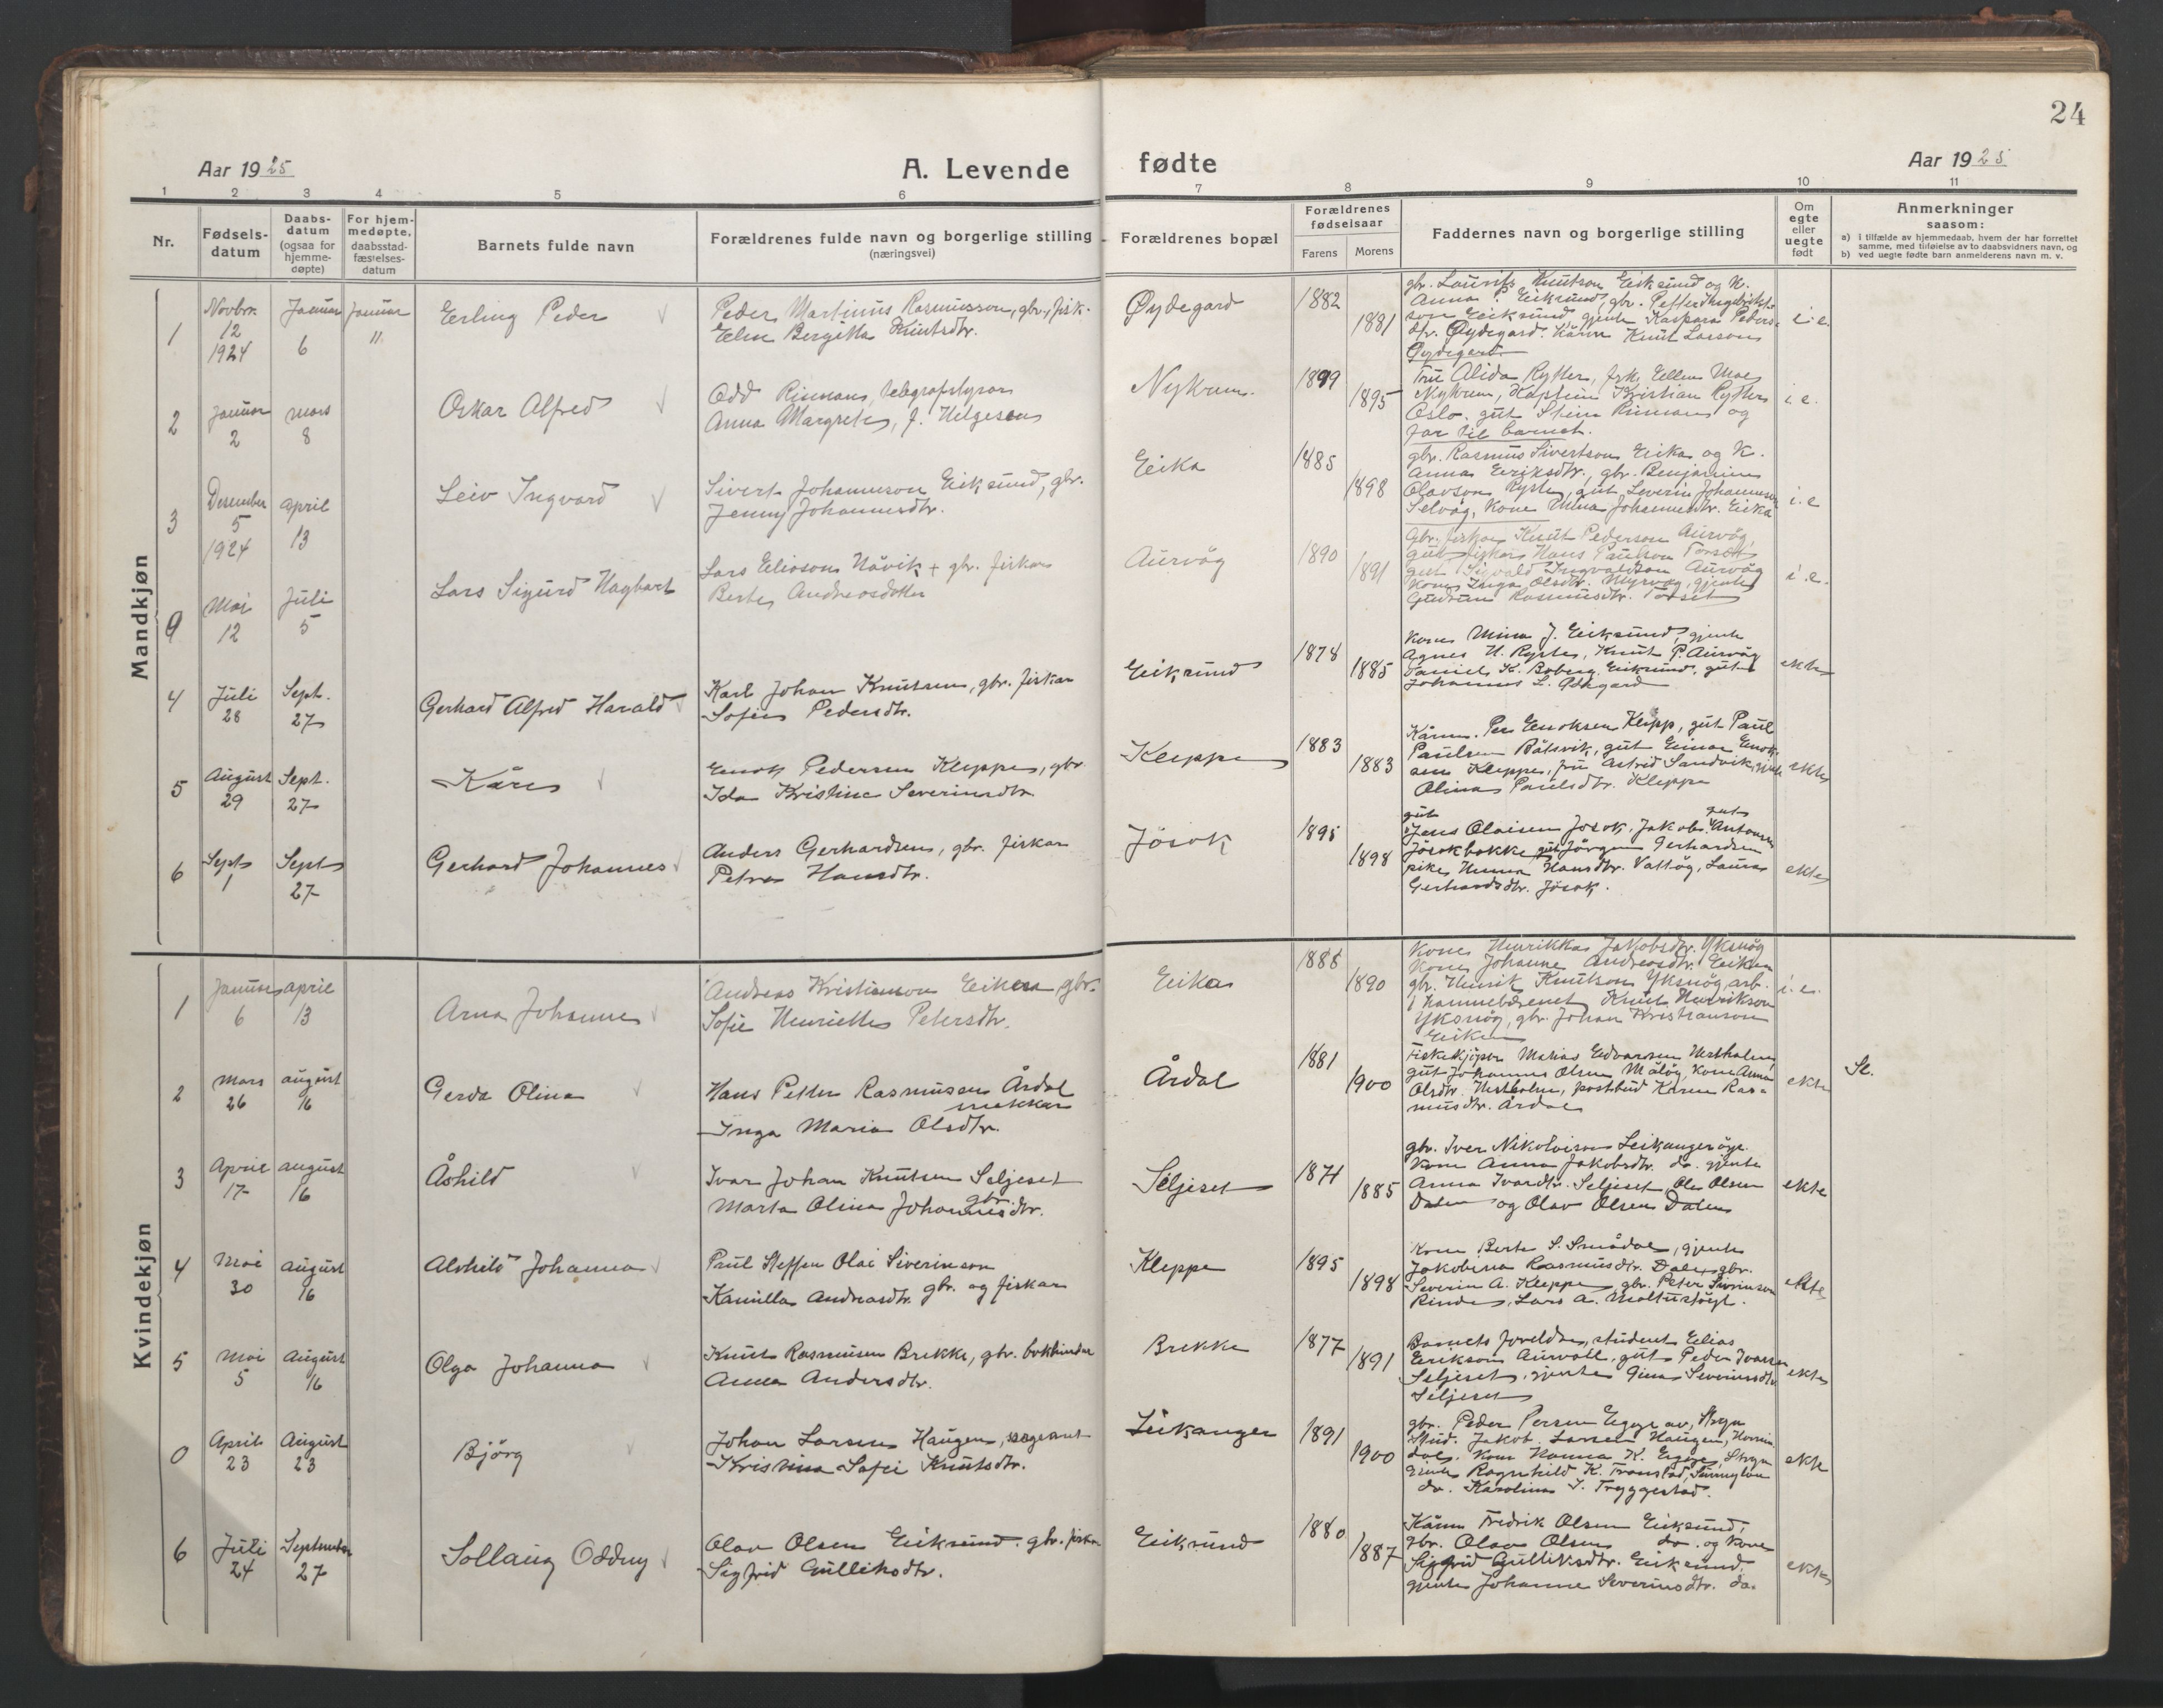 24
Aar 1925
A. Levende fødte
Aar 1925
1 2 3 4 5 6 7 8 9 10 11
Nr.
Fødsels-datum
Daabs-datum (ogsaa for hjemme-døpte)
For hjem-medøpte, daabsstad-fæstelses-datum
Barnets fulde navn
Forældrenes fulde navn og borgerlige stilling (næringsvei)
Forældrenes bopæl
Forældrenes fødselsaar
Farens
Morens
Faddernes navn og borgerlige stilling
Om egte eller uegte født
Anmerkninger saasom:
a) i tilfælde av hjemmedaab, hvem der har forrettet samme, med tilføielse av to daabsvidners navn, og
b) ved uegte fødte barn anmelderens navn m. v.
Mandkjøn
1
Novbr. 12 1924
Januar 6
Januar 11
Erling Peder
Peder Martinus Rasmusson, gbr., fisk.
Elen Bergitta Knutsdtr.
Øydegard
1882
1881
gbr. Laurits Knutson Eiksund og K.
Anna P. Eiksund, gbr.
son Eiksund, gjente Kaspara Peders-
dtr. Øydegard. Kårm Knut Larson
Øydegard
i.e.
2
Januar 2
mars 8
Oskar Alfred
Odd Rinnan, telegrafstyrar
Anna Margrete, f. Helgesen
Nykrem.
1899
1895
Fru Alida Rytter, frk. Ellen Moe
Nykrem, Kaptein Kristian Rytter
Oslo. gut Stein Rinnan og
far til barnet.
i.e.
3
Desember 5 1924
april 13
Leiv Ingvard
Sivert Johannson Eiksund, gbr.
Jenny Johannesdtr.
Eika
1885
1898
gbr. Rasmus Sivertson Eika og K.
Anna Eriksdtr., gbr. Benjamin
Olavson Ryste, gut Severin Johannson
Selvåg, Kone Mina Johannesdtr. Eika
i.e.
9
Mai 12
Juli 5
Lars Sigurd Hagbart
Lars Eliason Håvik + gbr. fiskar
Berte Andreasdotter
Aurvåg
1890
1891
Gbr. fiskar Knut Pederson Aurvåg,
gut fiskar Hans Paulson Torset
gut Sigvald Ingvaldson Aurvåg
Kone Inga Olsdtr. Myrvåg, gjente
Gudrun Rasmusdtr. Torset
i.e.
4
Juli 28
Sept. 27
Gerhard Alfred Harald
Karl Johan Knutsen, gbr. fiskar
Sofie Pedersdtr.
Eiksund
1878
1885
Kone Mina J. Eiksund, gjente
Agnes H. Ryste, Knut P. Aurvåg
Daniel K. Boberg Eiksund, gut
Johannes L.
ekte
5
August 29
Sept. 27
Kåre
Enok Pedersen Kleppe, gbr
Ida Kristine Severinsdtr.
Kleppe
1883
1883
Kårm. Per Enoksen Klepp, gut Paul
Paulsen Båtsvik, gut Einar Enok-
sen Kleppe, fru Astrid Sandvik, gjente
Olina Paulsdtr. Kleppe
ekte
6
Sept 1
Sept 27
Gerhard Johannes
Anders Gerhardsen, gbr. fiskar
Petra Hansdtr.
Jösok
1895
1898
gut
Jens Olaisen Jösok, Jakob Antonsen
Jösokbakke, gut Jörgen Gerhardsen
pike Hanna Hansdtr. Vattög, Laura
Gerhardsdtr. Jösok.
ekte
Kvindekjøn
1
Januar 6
april 13
Arna Johanne
Andreas Kristianson Eiken gbr.
Sofie Henriette Petersdtr.
Eika
1888
1890
Kone Henrikka Jakobsdtr. Yksnög
Kone Johanne Andreasdtr. Eiken
gbr. Henrik Knutson Yksnög, arb.
Knut Henrikson
Yksnög, gbr. Johan Kristianson
Eiken
i.e.
2
Mars 26
august 16
Gerda Olina
Hans Petter Rasmusen Årdal
Inga Maria Olsdtr.
Årdal
1881
1900
Fiskekjöper Matias Edvardsen Nestholm,
gut Johannes Olsen Måløy, Kone Anna
Olsdtr. Nestholm, postbud Karen Ras-
musdtr. Årdal
ekte
3
April 17
august 16
Åshild
Ivar Johan Knutsen Seljeset
gbr.
Marta Olina Johannesdtr.
Seljeset
1871
1885
gbr. Iver Nikolaison Leikangeröye
Kone Anna Jakobsdtr. do. gjente
Anna Ivarsdtr. Seljeset, Ole Olsen
Dalen og Olav Olsen Dalen
ekte
4
Mai 30
august 16
Alvhild Johanna
Paul Steffen Olai Siverinson
Kamilla Andreasdtr. gbr. og fiskar
Kleppe
1895
1898
Kone Berte S. Smådal, gjente
Jakobina Rasmusdtr. Dale, gbr.
Severin A. Kleppe, gbr. Peter Siverinson
Rinde, Lars A.
ekte
5
Mai 5
August 16
Olga Johanna
Knut Rasmusen Brekke, gbr. bokbindar
Anna Andersdtr.
Brekke
1877
1891
Barnets foreldre, student Elias
Erikson Aurvoll, gut Peder Ivarsen
Seljeset, gjente Gina Severinsdtr.
Seljeset
ekte
0
April 23
August 23
Björg
Johan Larsen Haugen, sersjant
Kristina Sofie Knutsdtr.
Leikanger
1891
1900
gbr. Peder Persen Eggje av, Stryn
Stud. Jakob Larsen Haugen, Hornin-
dal. Kone Hanna K. Eggje, Stryn
gjente Ragnhild K. Tronstad, Sunnylven
do. Karolina I. Tryggestad.
ekte
6
Juli 24
September 27
Sollaug Oddny
Olav Olsen Eiksund. gbr. fiskar
Sigfrid Gulliksdtr.
Eiksund
1880
1887
Kårm Fredrik Olsen Eiksund,
gbr. Olav Olsen do. og Kone
Sigfrid Gulliksdtr. Eiksund,
gjente Johanne Severinsdtr. do.
ekte